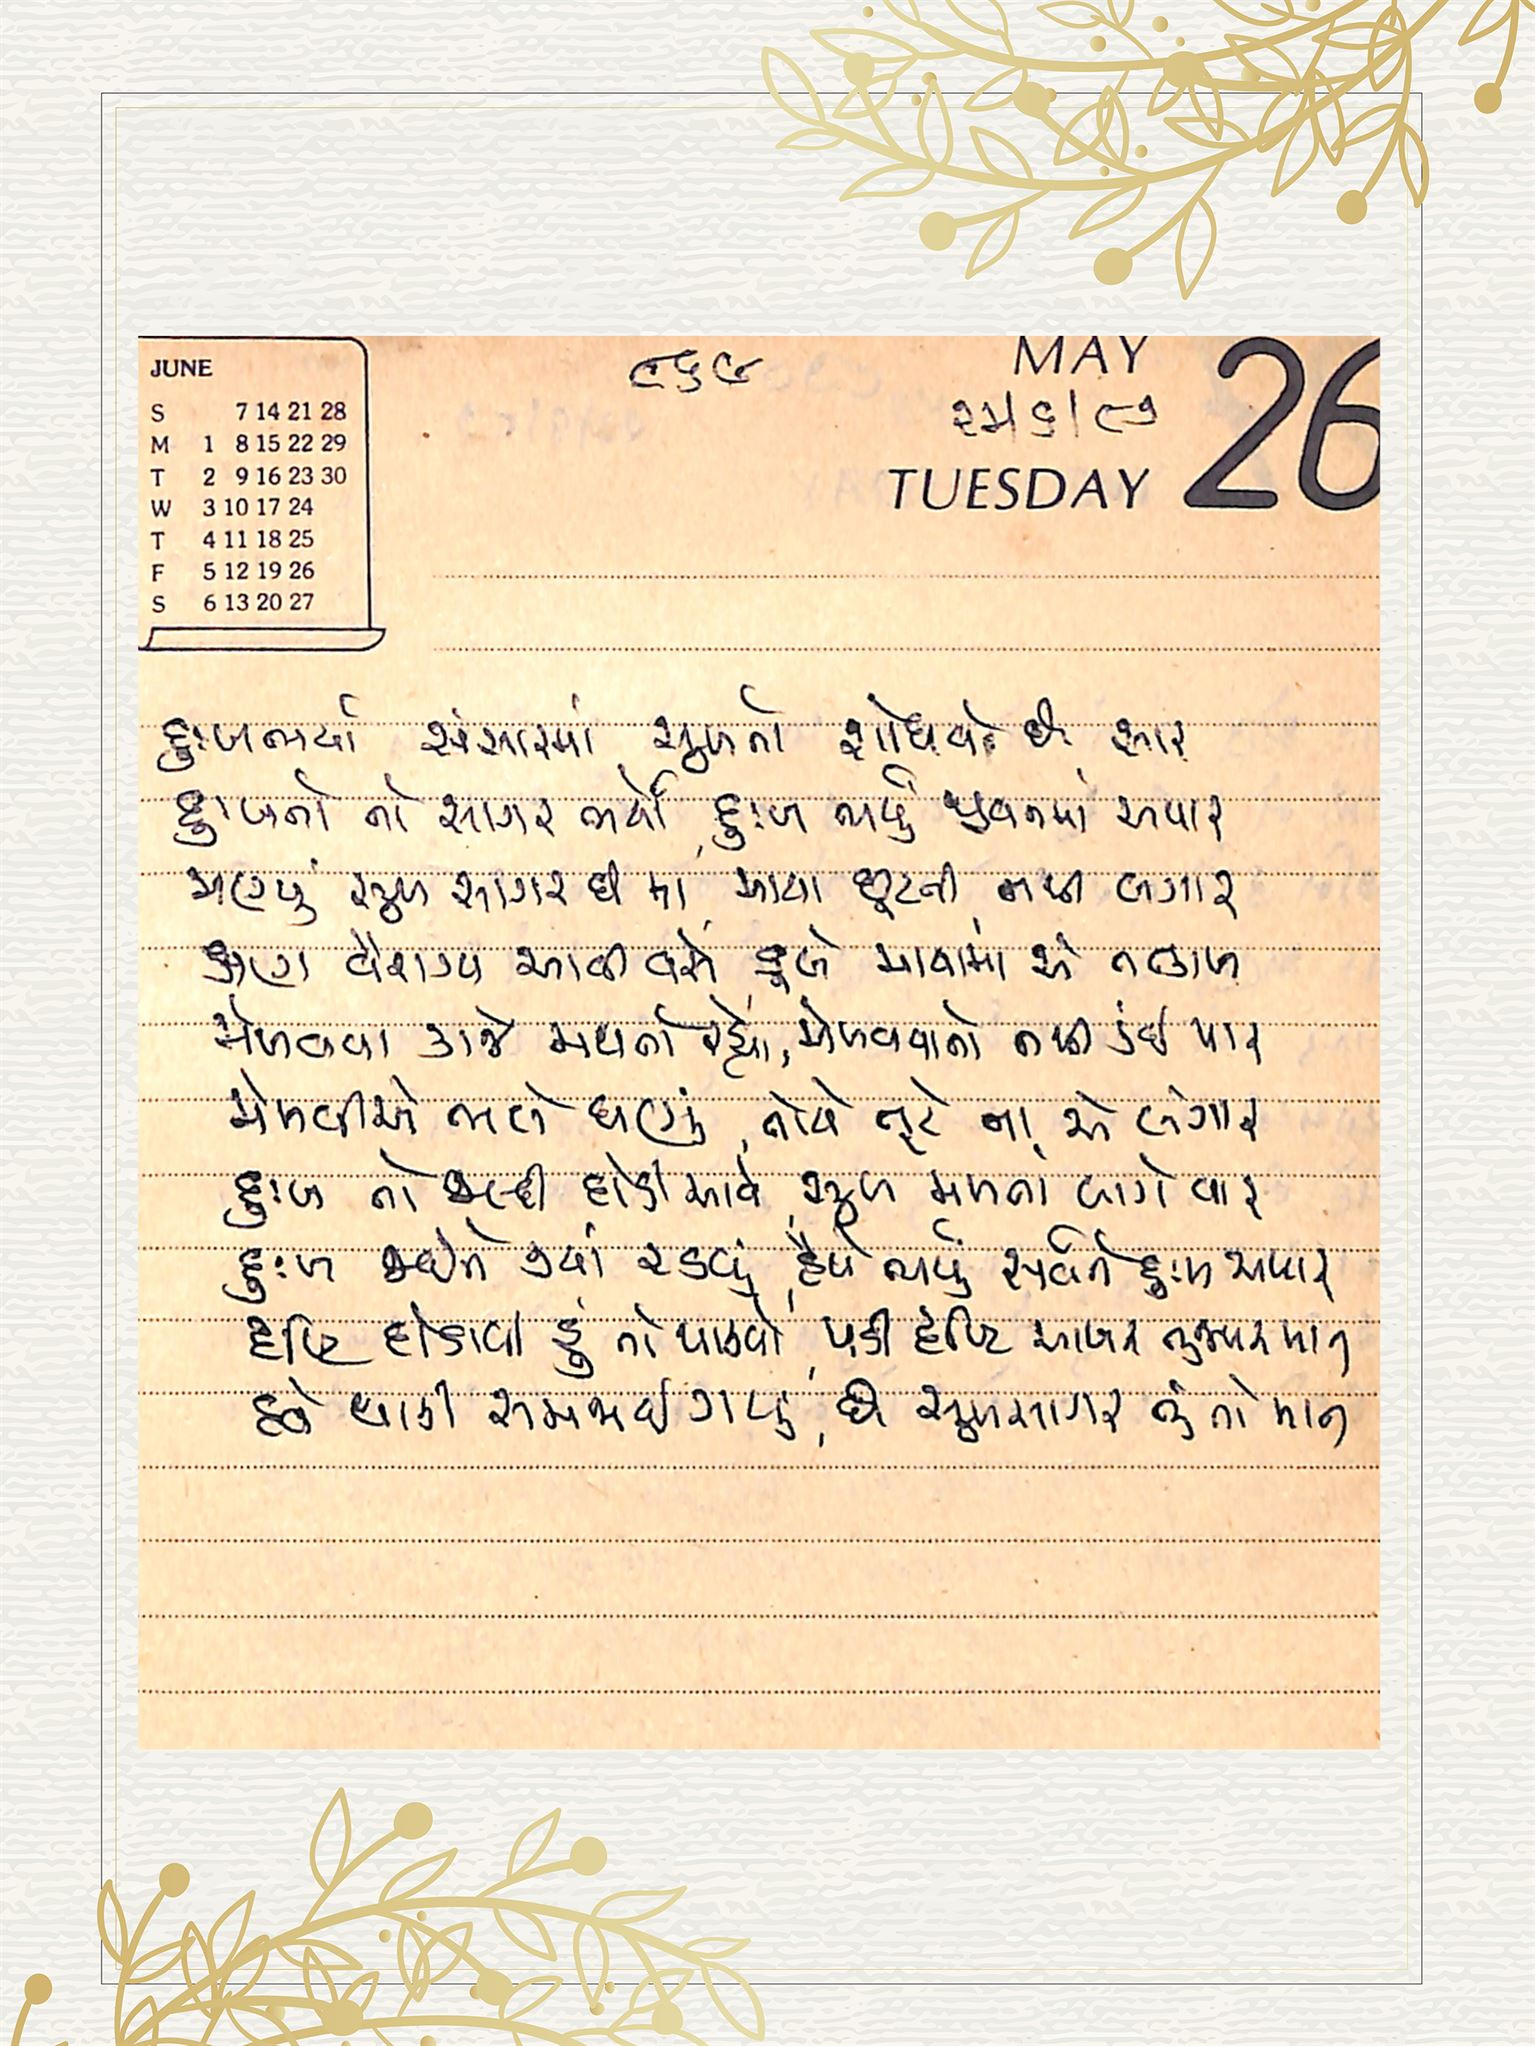 JUNE
S 7 14 21 28
M 1 8 15 22 29
T 2 9 16 23 30
W 3 10 17 24
T 4 11 18 25
F 5 12 19 26
S 6 13 20 27
૯૬૯
MAY
૨૫/૬/૮૭
TUESDAY 26
દુઃખભર્યા સંસારમાં સુખનો શોધવો છે સાર
દુઃખનો તો સાગર ભર્યો, દુઃખ ભર્યું જીવનમાં અપાર
મણ્યું સુખ સાગર છે મા, માયા છૂટતી નથી લગાર
ક્ષણ વૈરાગ્ય આવી વસે, ડૂબે માયામાં એ તત્કાળ
મેળવવા કાજે મથતો રહ્યો, મેળવવાનો નથી કંઈ પાર
મેળવીએ ભલે ઘણું, તોયે તૂટે ના એ લંગાર
દુઃખ તો જલ્દી દોડી આવે, સુખ મળતાં લાગે વાર
દુઃખ જઈને ક્યાં રડવું, હૈયે ભર્યું સર્વને દુઃખ અપાર
દૃષ્ટિ દોડાવી હું તો થાક્યો, પડી દૃષ્ટિ આખર તુજ પર માત
હવે થાકી સમજાઈ ગયું, છે સુખસાગર તું તો માત